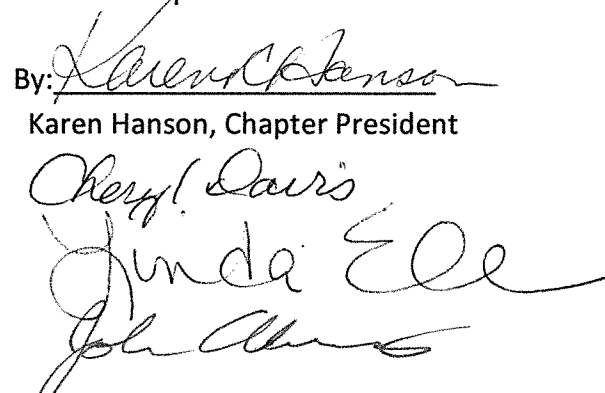 By: Karen C Hanson
Karen Hanson, Chapter President
Cheryl Davis
Linda
John